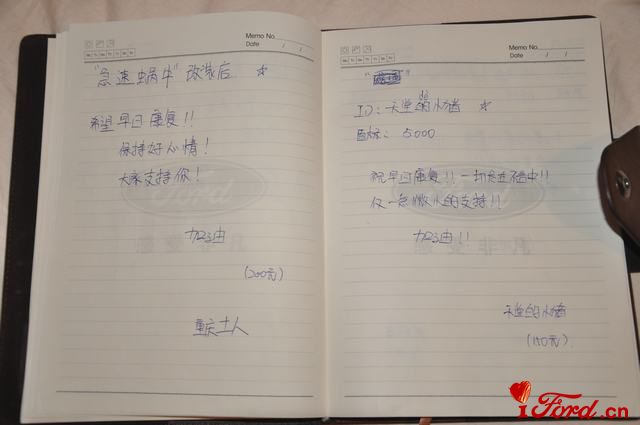 Memo No.
Date / /
"急速蜗牛" 改装店 ☆
希望早日康复!!
保持好心情!
大家支持你!
加油
(200元)
重庆土人
Memo No.
Date / /
ID: 天堂的 ☆
5000
祝早日康复!! 一切尽在不言中!!
仅一点微火的支持!!
加油!!
天堂的
(150元)
Ford
iFord.cn